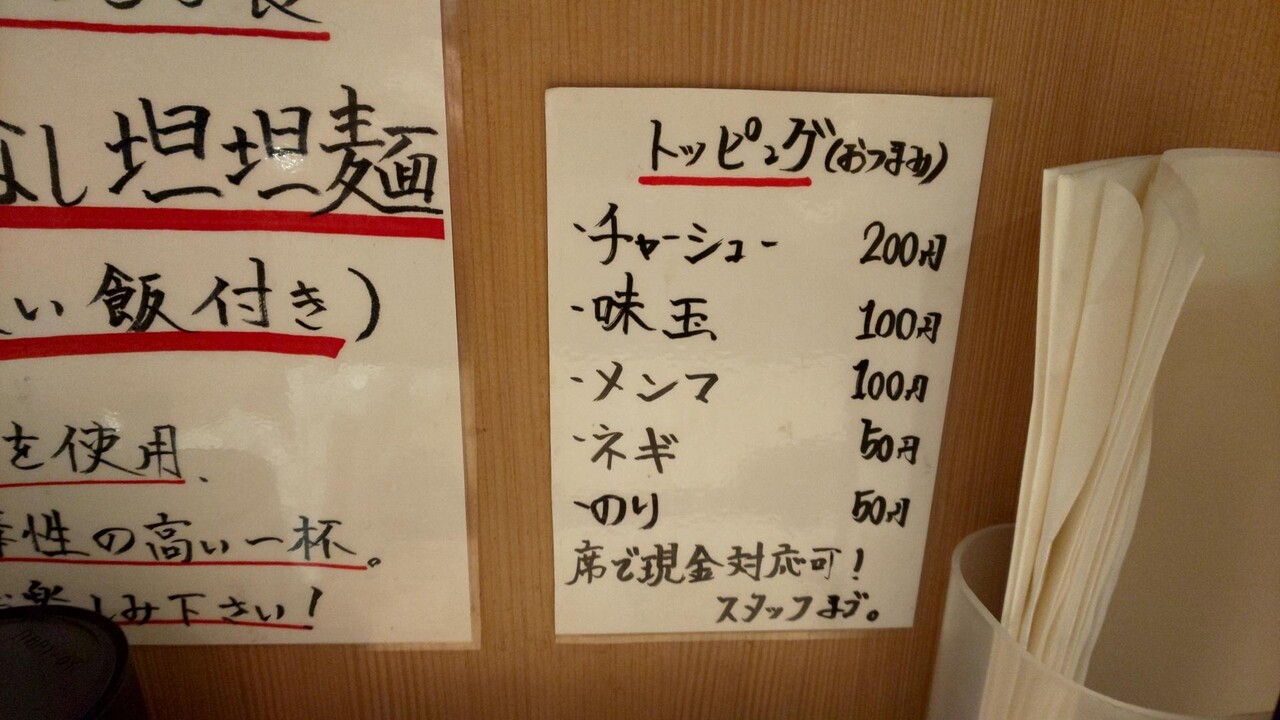 なし坦坦麺
い飯付き)
を使用、
性の高い一杯。
楽しみ下さい!
トッピング(おつまみ)
・チャーシュー 200円
・味玉 100円
・メンマ 100円
・ネギ 50円
・のり 50円
席で現金対応可!
スタッフまで。